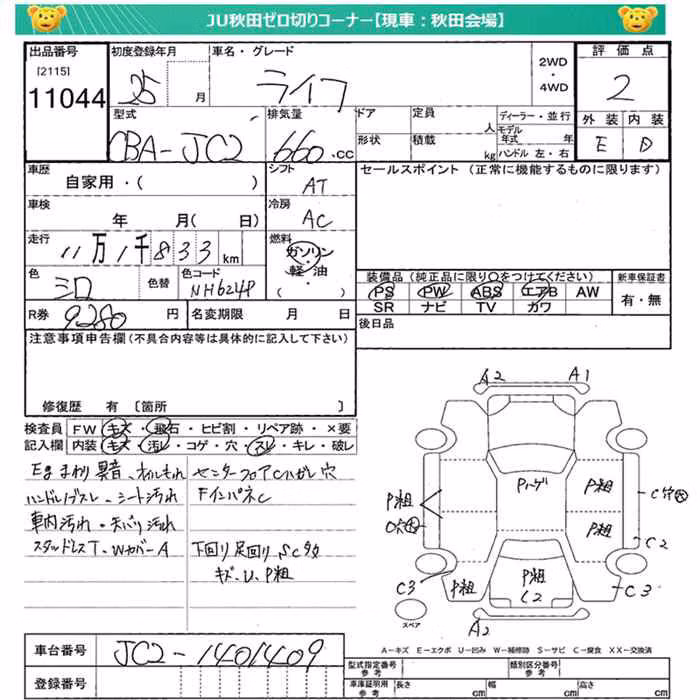 JU秋田ゼロ切りコーナー【現車：秋田会場】
出品番号 初度登録年月 車名・グレード 2WD・4WD 評価点
[2115]
11044 25 月 ライフ 2
型式 排気量 ドア 定員 人 ディーラー・並行 外装 内装
モデル年式 年
CBA-JC2 660.CC 形状 積載 kg ハンドル 左・右 E D
車歴 シフト セールスポイント（正常に機能するものに限ります）
自家用・( ) AT
車検 冷房
年 月( 日) AC
走行 燃料
11万1千833km ガソリン・軽油
( )
色 色替 色コード 装備品（純正品に限り○をつけてください） 新車保証書
シロ NH624P PS PW ABS エアB AW 有・無
SR ナビ TV カワ
R券 9280 円 名変期限 月 日 後日品
注意事項申告欄（不具合内容等は具体的に記入して下さい）
修復歴 有 〔箇所 〕
検査員 FW キズ・飛石・ヒビ割・リペア跡・×要
記入欄 内装 キズ・汚レ・コゲ・穴・スレ・キレ・破レ
Egまわり異音、オイルもれ センターフロアCハガレ穴
ハンドルノブスレ・シート汚れ FインパネC
車内汚れ・天バリ汚れ
スタッドレスT、Wカバー A 下回り足回りSC多
キズ・U、P粗
A2 A1
Pハゲ P粗
P粗 C穴大
C穴大 P粗
C2
C3 P粗 P粗 P粗 C3
C2
スペア A2
A－キズ E－エクボ U－凹み W－補修跡 S－サビ C－腐食 XX－交換済
車台番号 JC2-1401409 型式指定番号 参考 類別区分番号 参考
登録番号 車庫証明用 参考 長さ cm 幅 cm 高さ cm